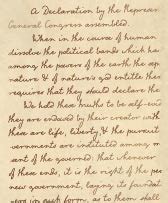 A Declaration by the Represen
General Congress assembled.
When in the course of human
dissolve the political bands which ha
among the powers of the earth the sep
nature & of nature's god entitle the
requires that they should declare the
We hold these truths to be self-evid
they are endowed by their creator with
these are life, liberty, & the pursuit
vernments are instituted among
sent of the governed: that whenever
of these ends, it is the right of the peo
new government, laying its foundat
in such form, as to them shall